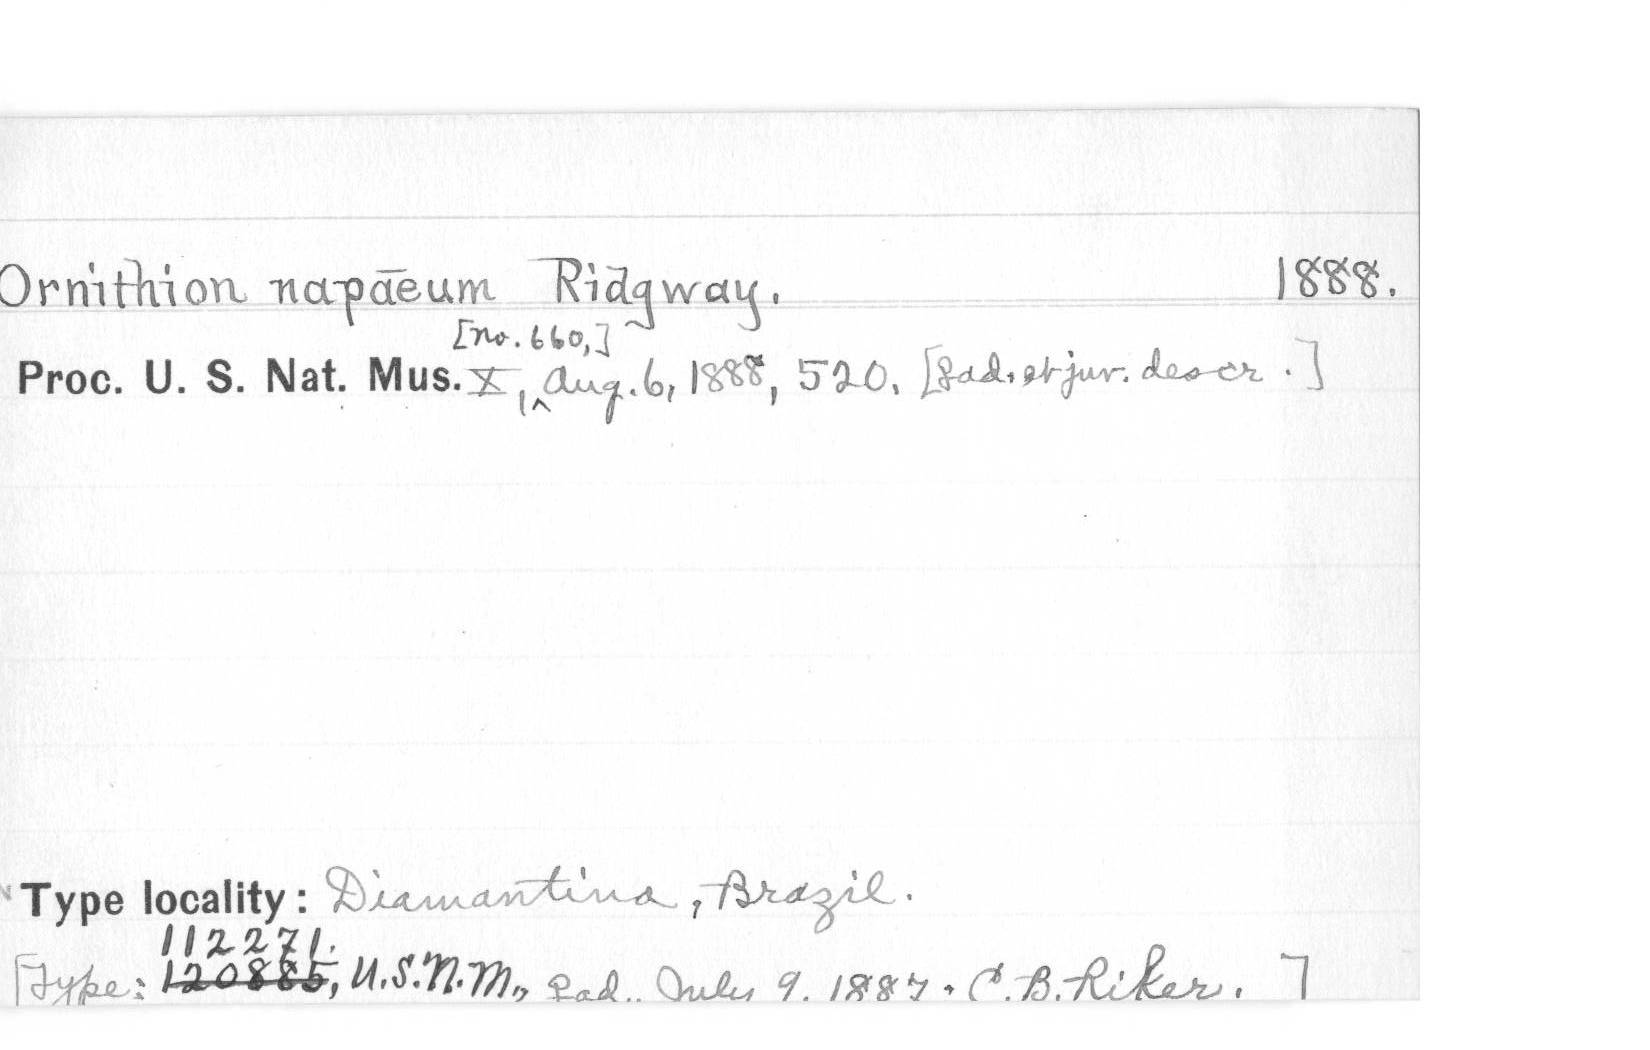 Ornithion napaeum Ridgway. 1888.
[no. 660,]
Proc. U. S. Nat. Mus. X, Aug. 6, 1888, 520. [♀ ad. et juv. descr.]
Type locality: Diamantina, Brazil.
112271.
[Type: 120885, U.S.N.M., ♀ ad., July 9, 1887. C. B. Riker.]